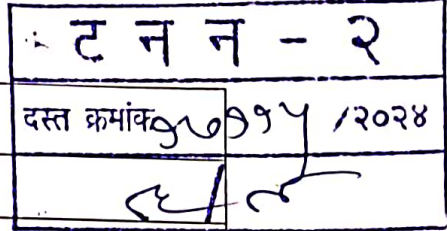 ट न न - २
दस्त क्रमांक १७११५ /२०२४